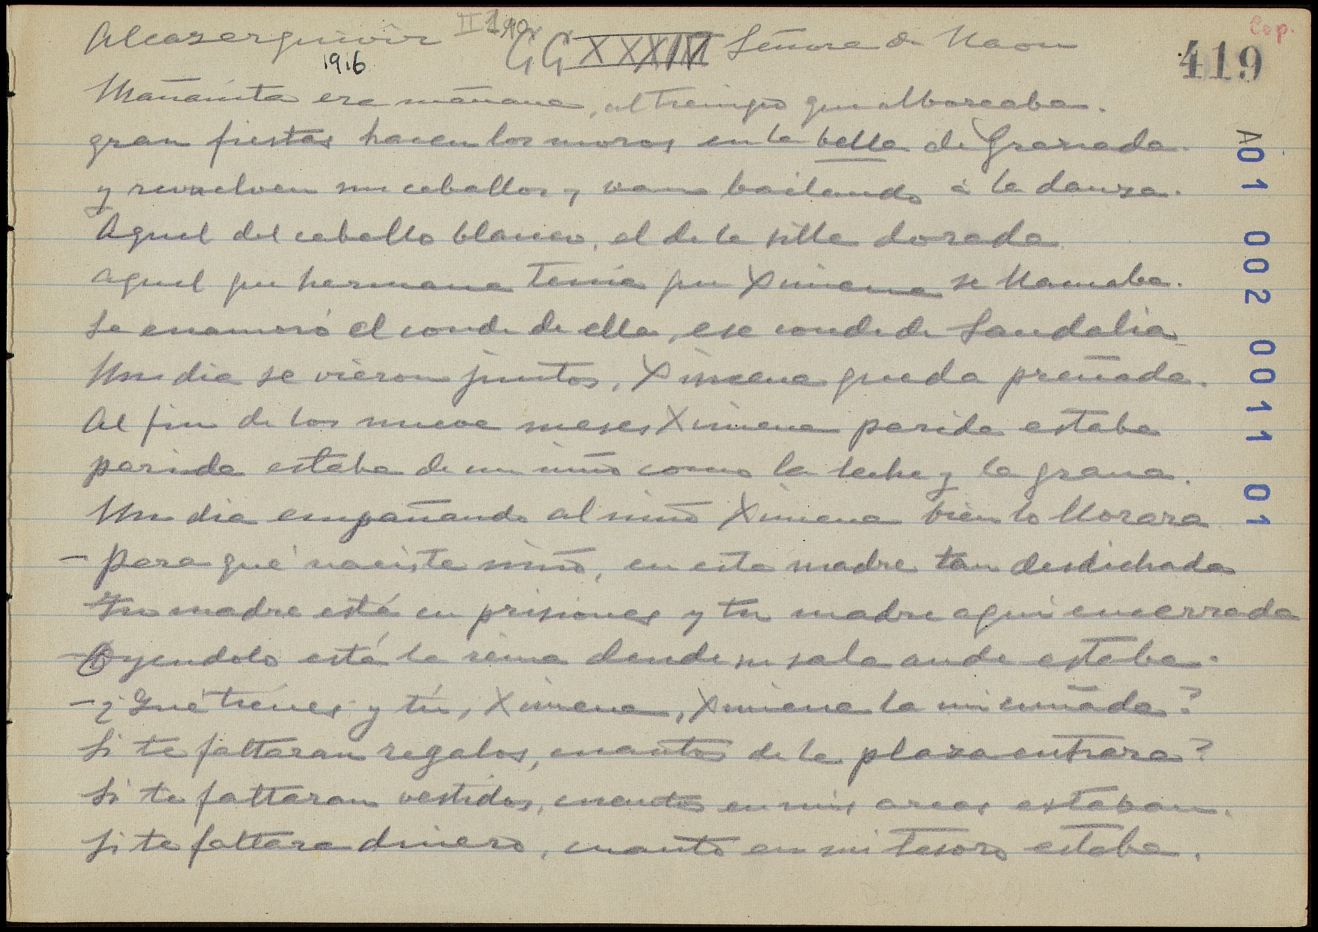 Alcazarquivir II 1ao CCXXXIV Señora de Naon Cop.
1916 419
Mañanita era mañana, al tiempo que alboreaba.
gran fiestas hacen los moros en la bella de Granada.
y revuelven sus caballos y van bailando á la danza.
Aquel del caballo blanco, el de la silla dorada
aquel que hermana tenía que Ximena se llamaba.
Se enamoró el conde de ella, ese conde de Sandalia
Un dia se vieron juntos, Ximena queda preñada.
Al fin de los nueve meses Ximena parida estaba
parida estaba de un niño como la leche y la grana.
Un dia empañando al niño Ximena bien lo llorara
- Para qué naciste niño, en esta madre tan desdichada
Tu madre está en prisiones y tu madre aqui encerrada
- Oyendolo está la reina dende su sala ande estaba.
- ¿Qué tienes y tú, Ximena, Ximena la mi cuñada?
Si te faltaran regalos, cuanto de la plaza entrara?
Si te faltaran vestidos, cuanto en mis arcas estaban.
Si te faltara dinero, cuanto en mi tesoro estaba.
A01 002 0011 01